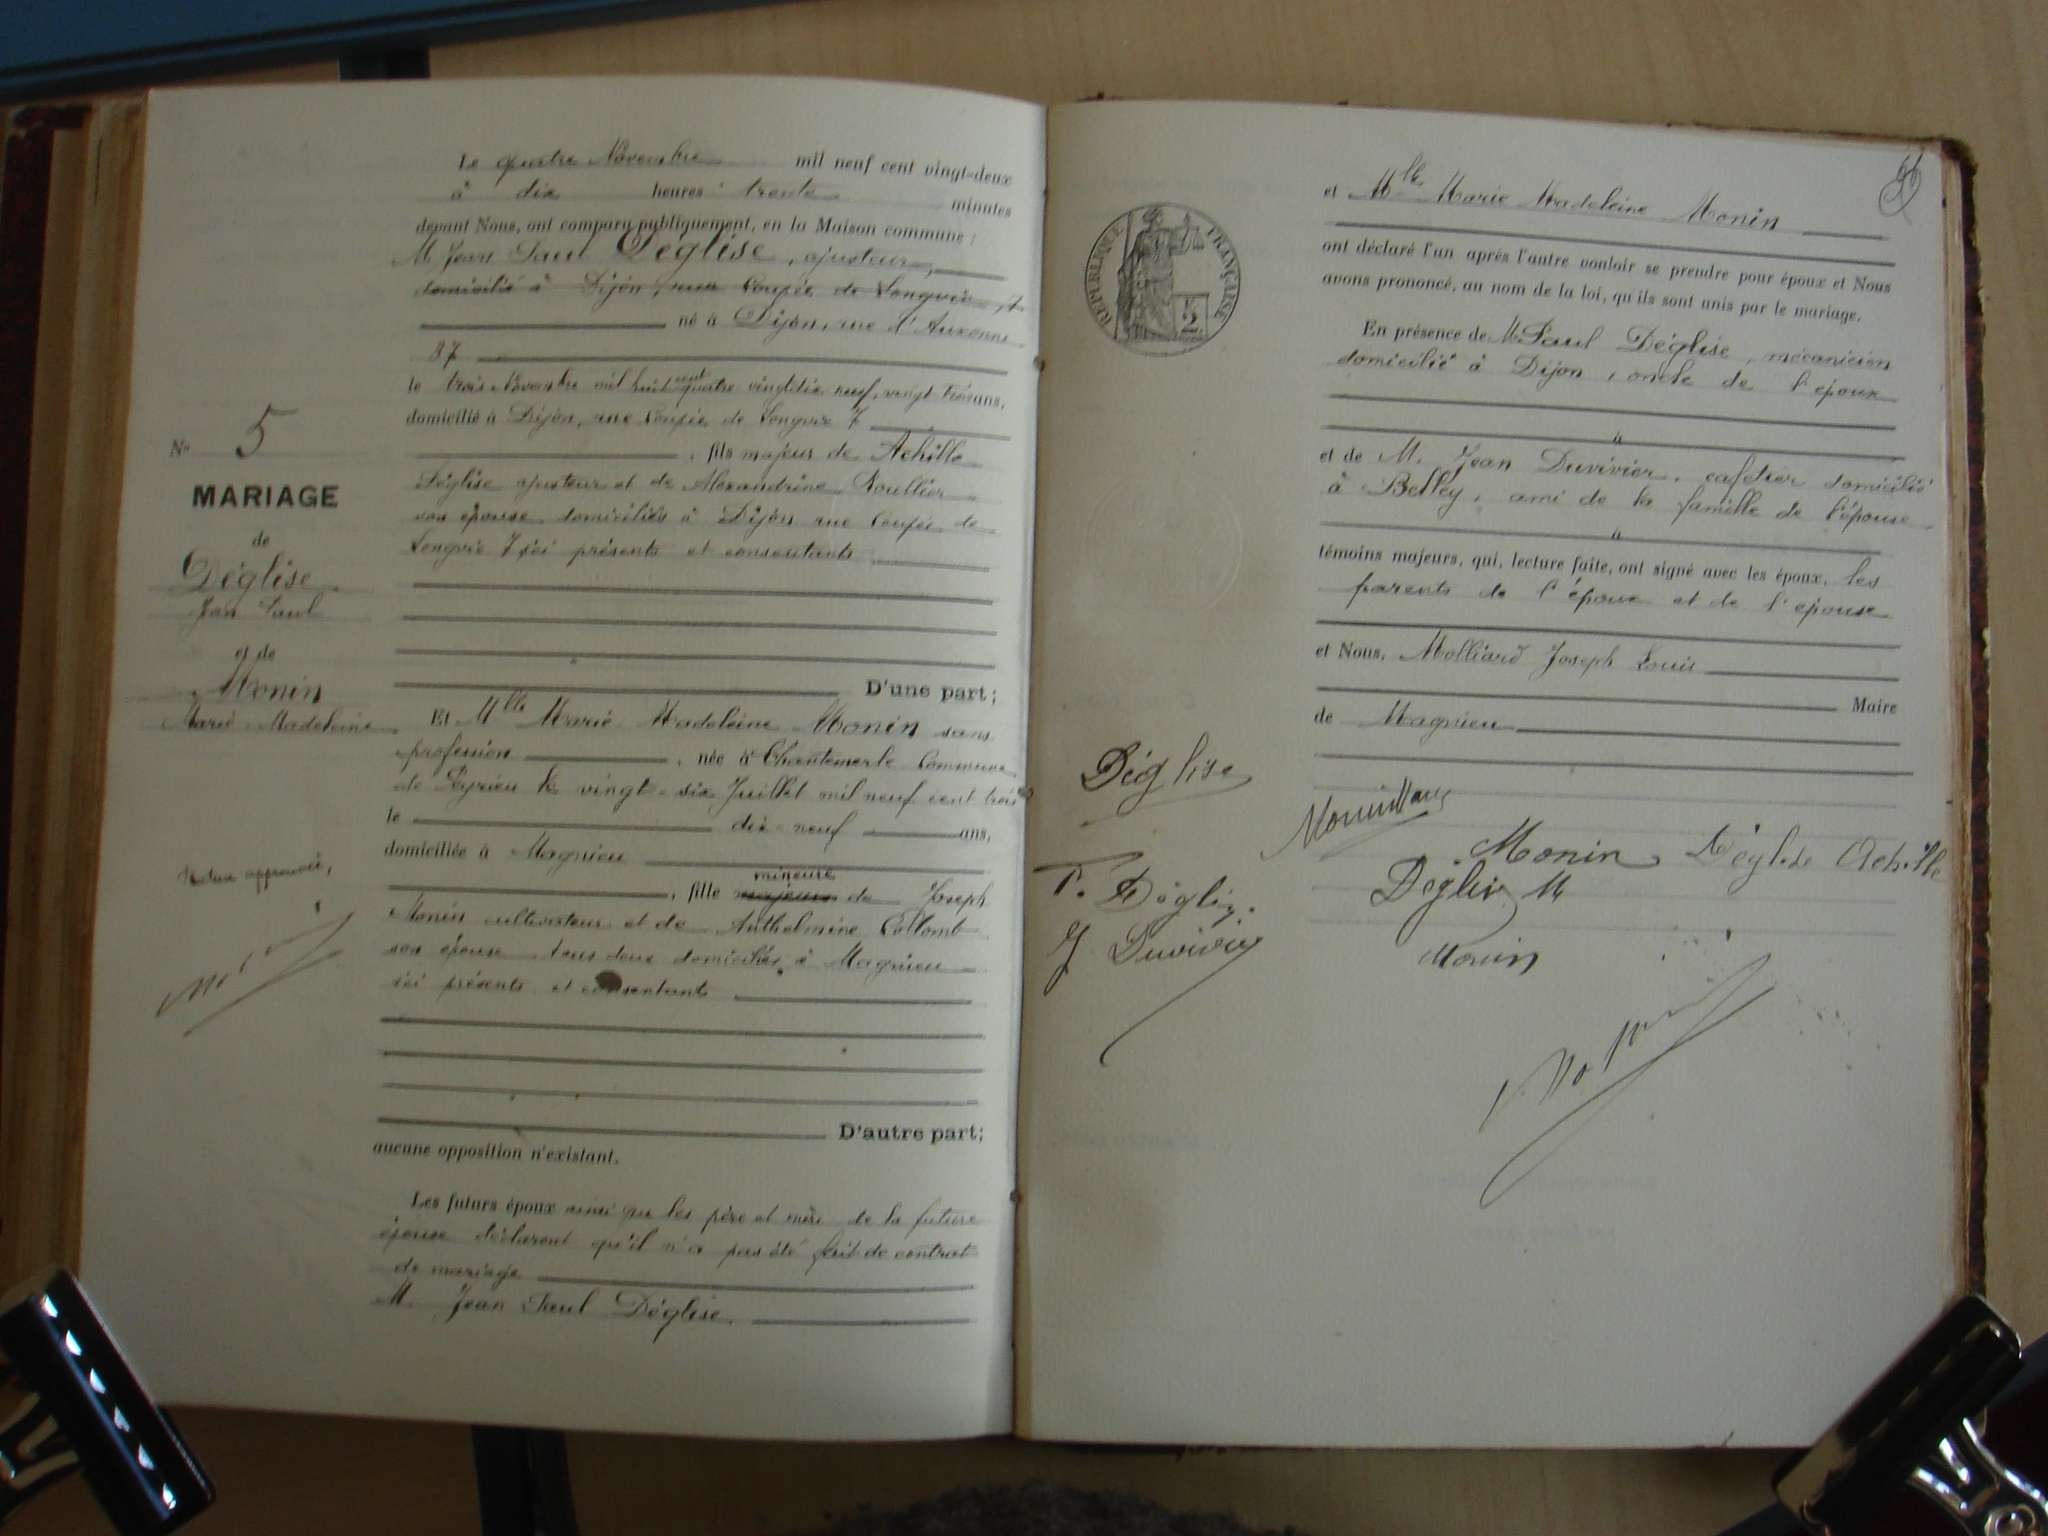 Le quatre Novembre mil neuf cent vingt-deux
à dix heures trente minutes
devant Nous, ont comparu publiquement, en la Maison commune :
M. Jean Paul Déglise, ajusteur,
domicilié à Dijon, rue Coupée de Longvic, 7
né à Dijon, rue d'Auxonne
37
le trois Novembre mil huit cent quatre vingt dix neuf, vingt trois ans,
domicilié à Dijon, rue Coupée de Longvic 7
, fils majeur de Achille
Déglise ajusteur et de Alexandrine Roullier
son épouse domiciliés à Dijon rue Coupée de
Longvic 7 ici présents et consentants
D'une part;
No 5
MARIAGE
de
Déglise
Jean Paul
et de
Monin
Marie Madeleine
Et Mlle Marie Madeleine Monin sans
profession , née à Chantemerle Commune
de Peyrieu le vingt-six Juillet mil neuf cent trois
le dix neuf ans,
domiciliée à Magnieu
, fille majeure mineure de Joseph
Monin cultivateur et de Anthelmine Collomb
son épouse tous deux domiciliés à Magnieu
ici présents et consentants
D'autre part;
aucune opposition n'existant.
approuvée,
Les futurs époux ainsi que les père et mère de la future
épouse déclarent qu'il n'a pas été fait de contrat
de mariage
M. Jean Paul Déglise
et Mlle Marie Madeleine Monin
ont déclaré l'un après l'autre vouloir se prendre pour époux et Nous
avons prononcé, au nom de la loi, qu'ils sont unis par le mariage.
En présence de M. Paul Déglise, mécanicien
domicilié à Dijon, oncle de l'époux
à
et de M. Jean Duvivier, cafetier domicilié
à Belley, ami de la famille de l'épouse
à
témoins majeurs, qui, lecture faite, ont signé avec les époux, les
parents de l'époux et de l'épouse
et Nous, Molliard Joseph Louis
Maire
de Magnieu
RÉPUBLIQUE FRANÇAISE
2
Déglise
Monin Déglise Achille
P. Déglise
Déglise M
J Duvivier
Monin